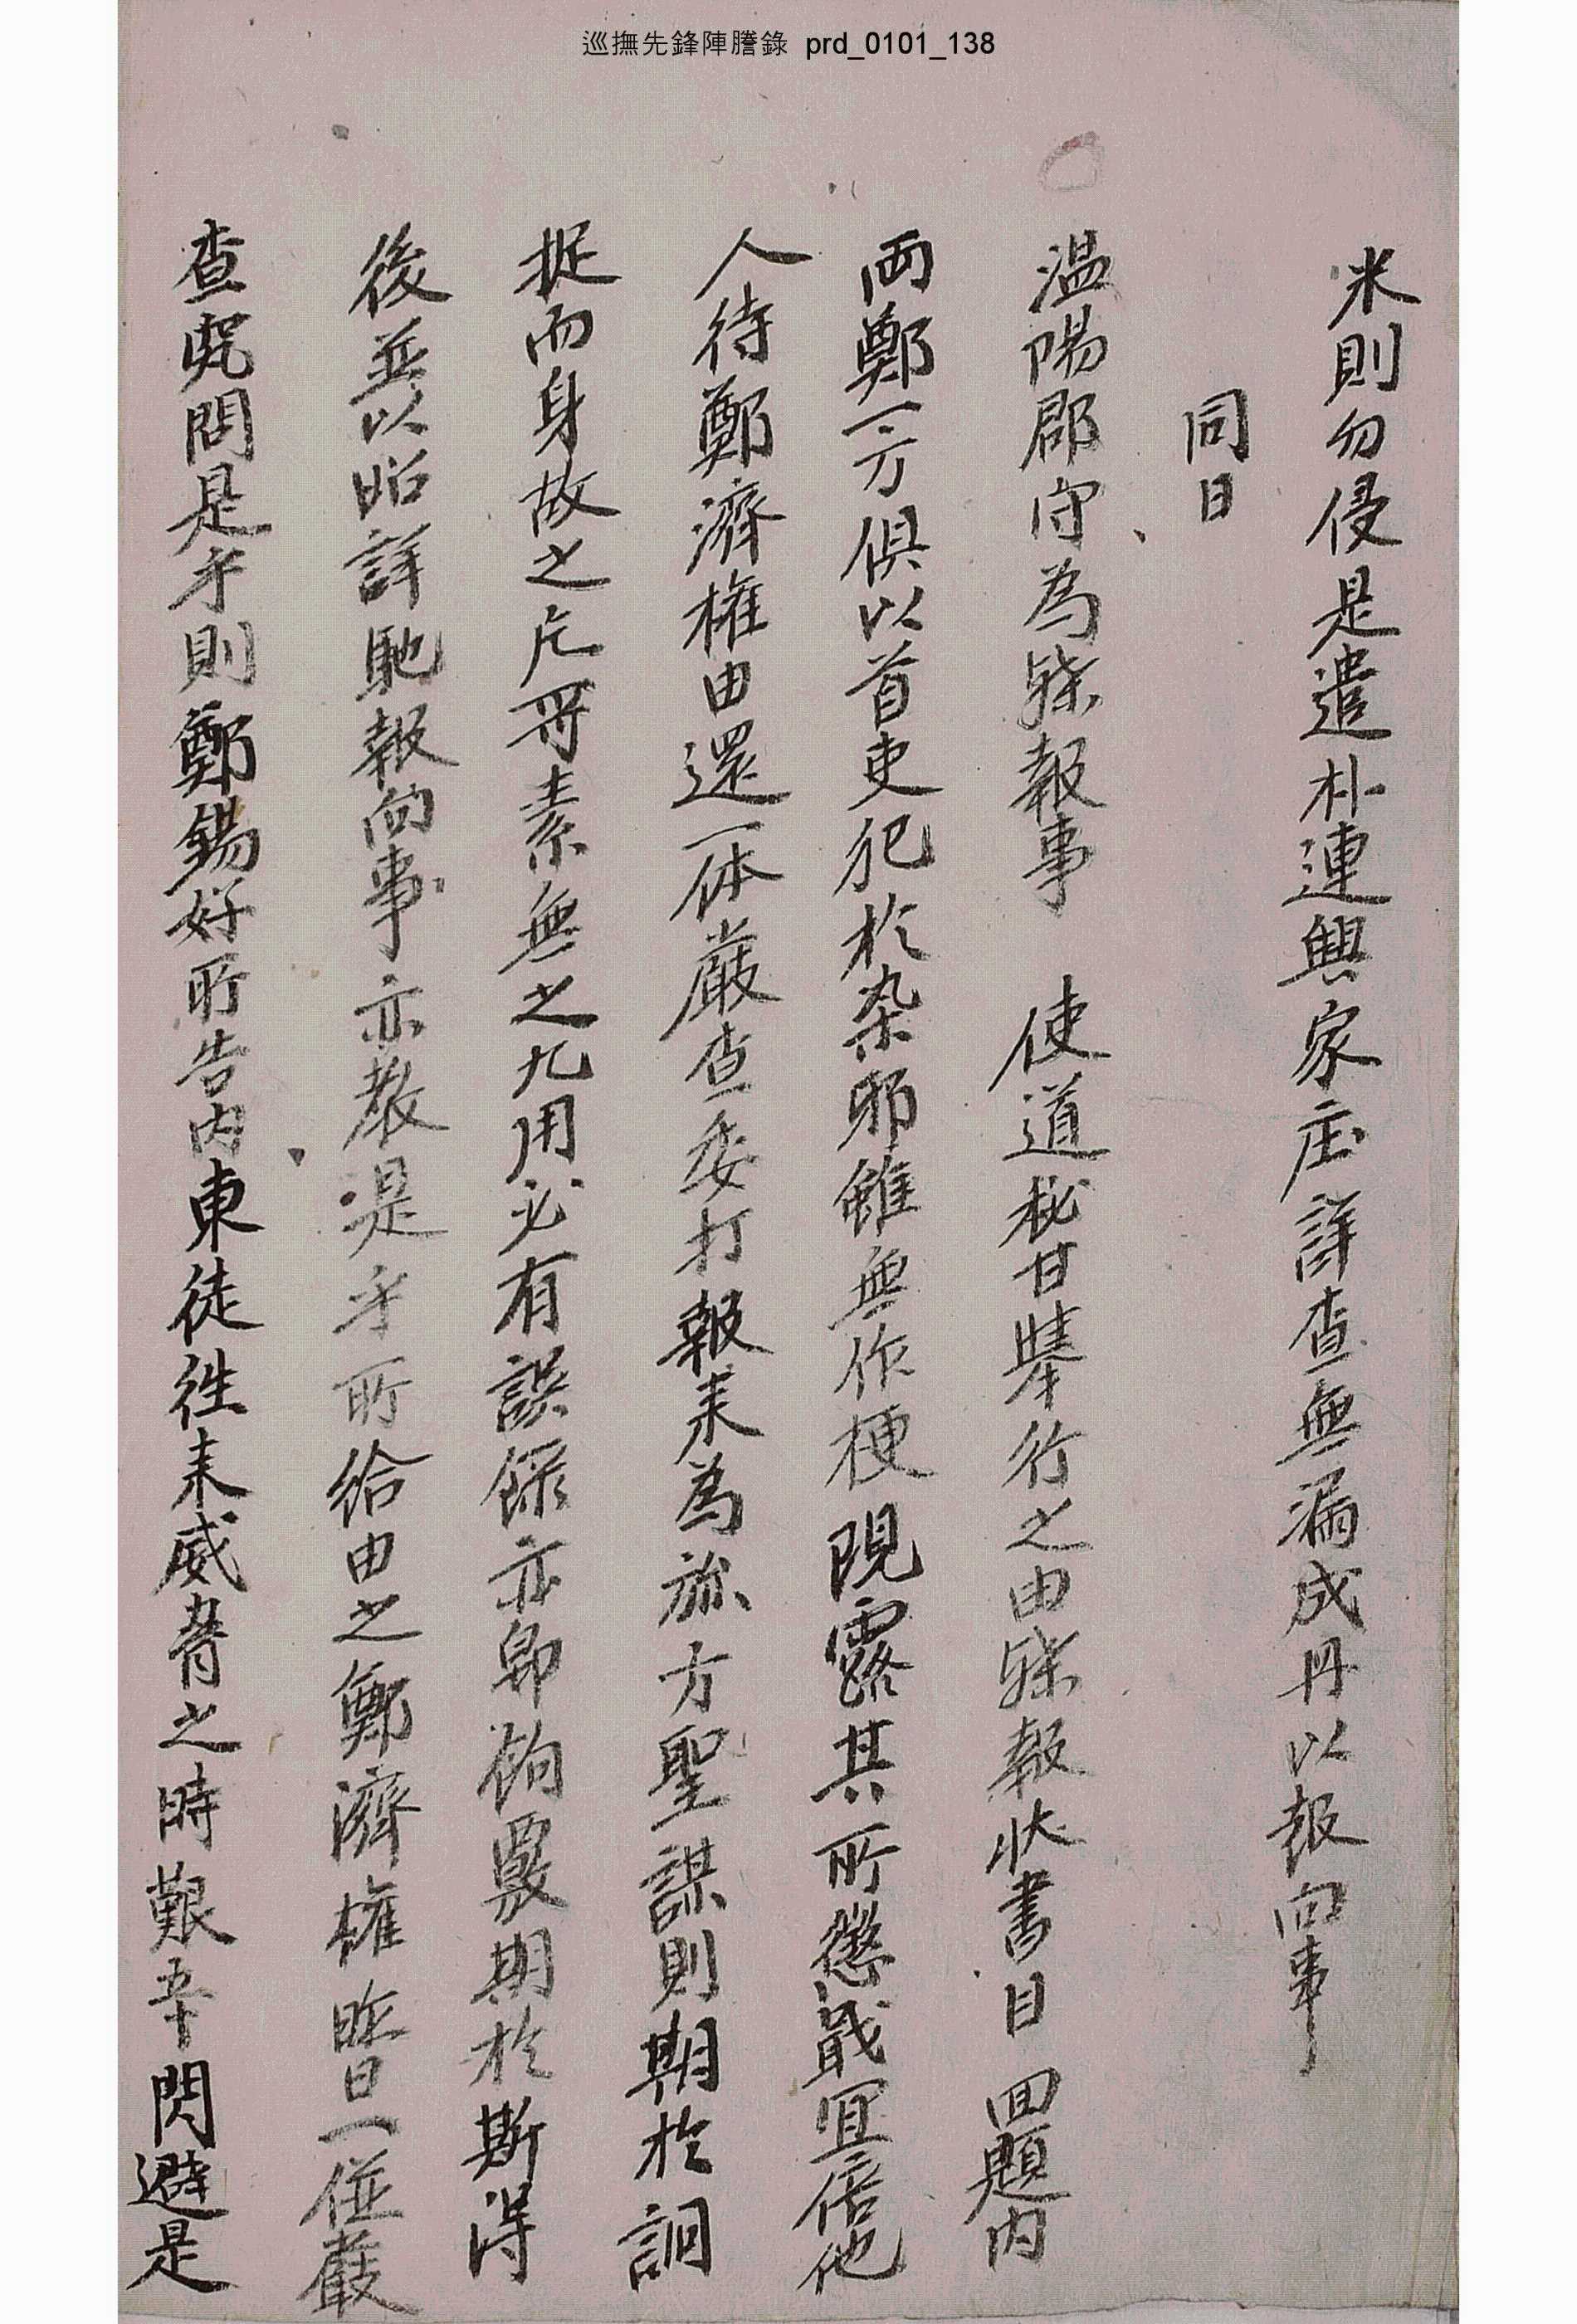 巡撫先鋒陣謄錄 prd_0101_138
米則勿侵是遣朴連興家庄詳查無漏成冊以報向事
同日
温陽郡守為牒報事 使道秘甘擧行之由牒報狀書目 回題内
両鄭一方俱以首吏犯於染邪雖無作梗現露其所懲戢宜倍他
人待鄭濟權由還一体嚴查委打報耒為㫆方聖謀則期於詗
捉而身故之凡㪳素無之九用必有誤傺亦卽餉署期於斯得
後並以昭詳馳報向事亦教是乎所給由之鄭濟權昨日一並嚴
查究問是乎則鄭錫好所告内東徒徃耒威脅之時艱辛閃避是